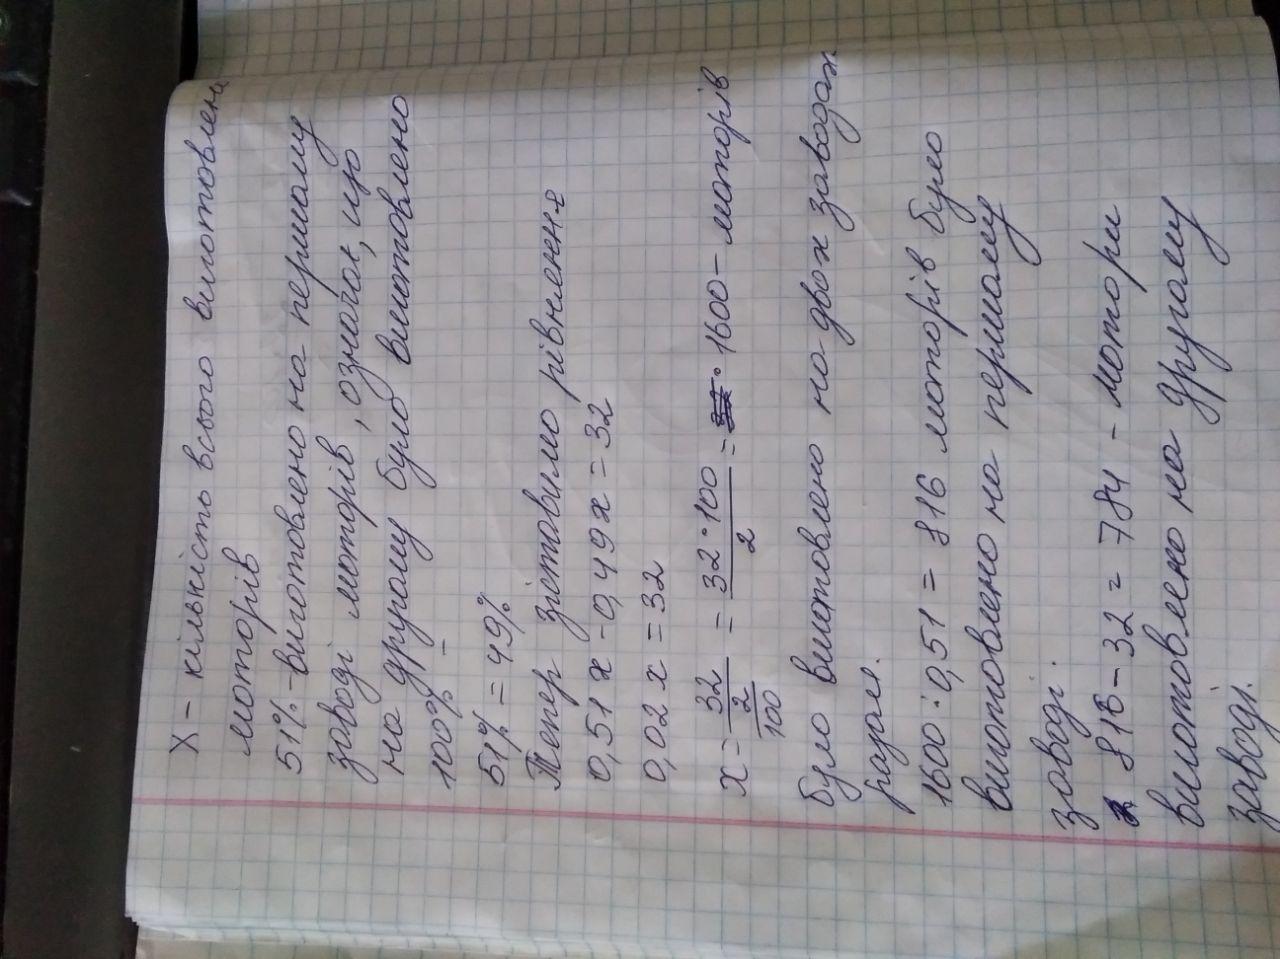 Х - кількість всього виготовлена
моторів
51% - виготовлено на першому
заводі моторів, означає, що
на другому було виготовлено
100% -
51% = 49%
Тепер зіставимо рівняння
0,51х - 0,49х = 32
0,02х = 32
х = 32/2/100 = 32·100/2 = 1600 - моторів
було виготовлено на двох заводах
разом.
1600 · 0,51 = 816 моторів було
виготовлено на першому
заводі.
816 - 32 = 784 - мотори
виготовлено на другому
заводі.